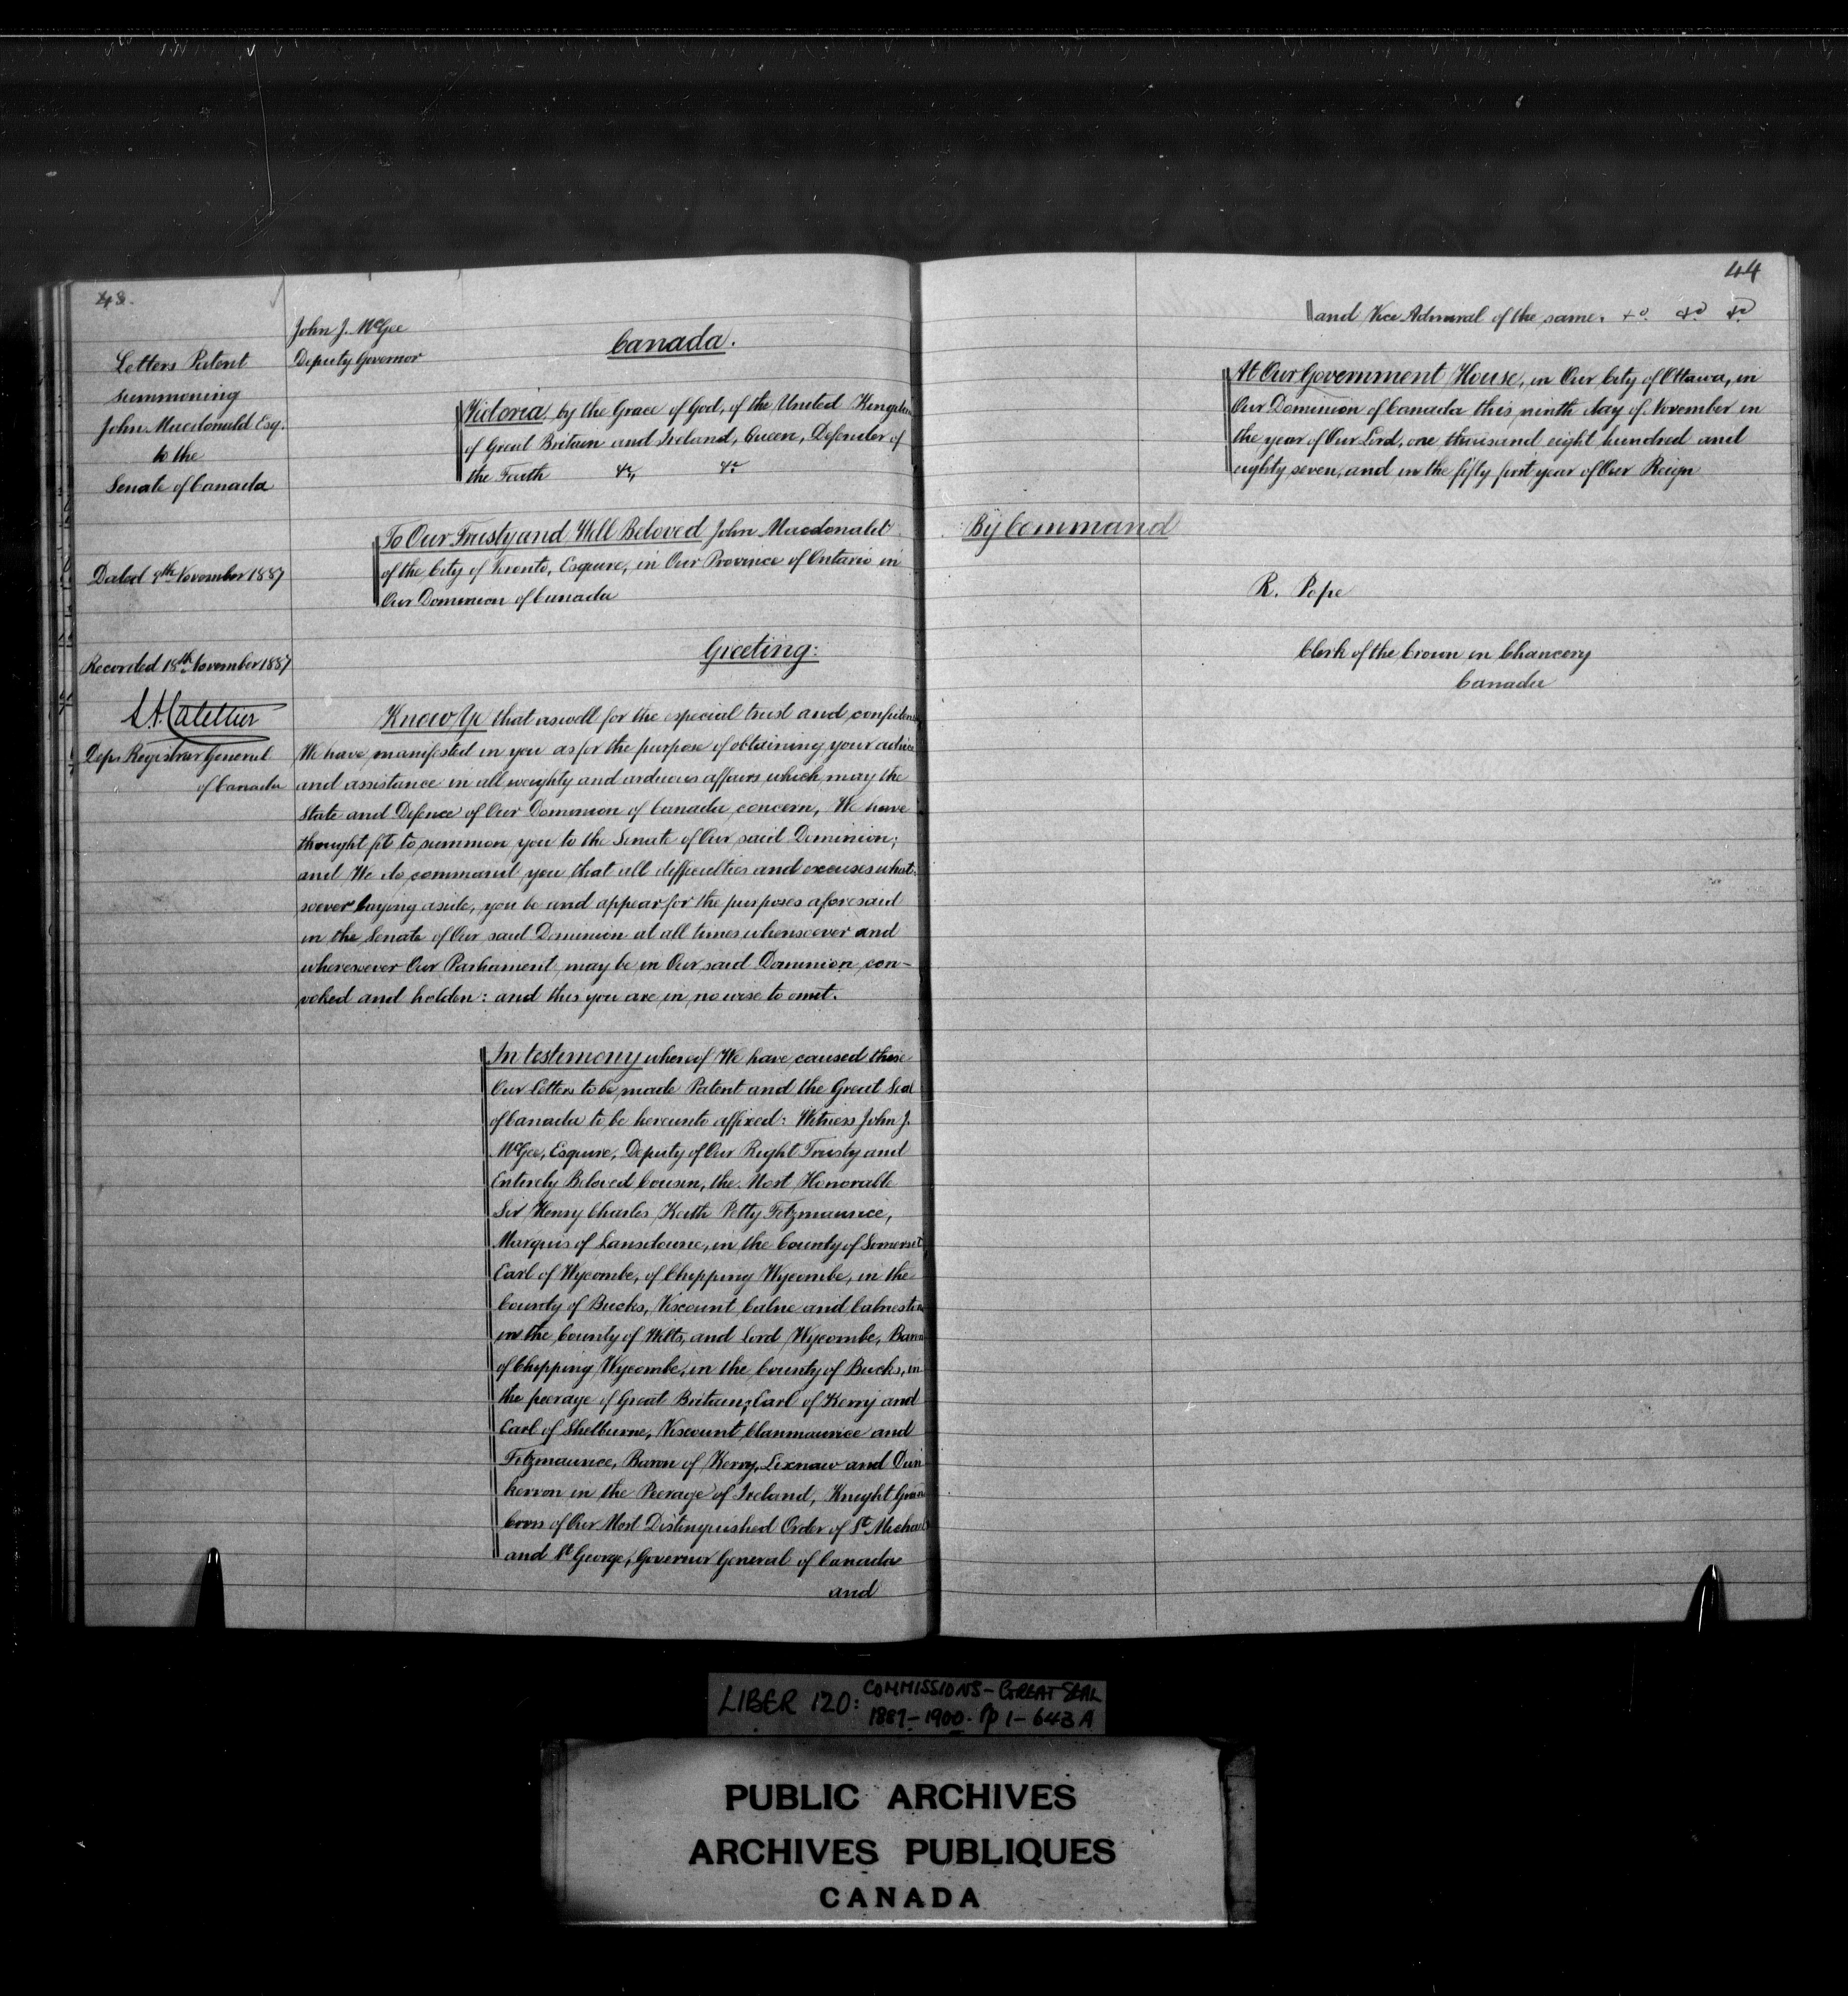 43.
John J. McGee
Deputy Governor
Canada.
Letters Patent
summoning
John Macdonald Esq.
to the
Senate of Canada
Dated 9th November 1887
Recorded 18th November 1887
Depy Registrar General
of Canada
Victoria, by the Grace of God, of the United Kingdom
of Great Britain and Ireland, Queen, Defender of
the Faith &c, &c
To Our Trusty and Well Beloved John Macdonald
of the City of Toronto, Esquire, in Our Province of Ontario in
Our Dominion of Canada
Greeting:
Know Ye that aswell for the especial trust and confidence
We have manifested in you as for the purpose of obtaining your advice
and assistance in all weighty and arduous affairs which may the
State and Defence of Our Dominion of Canada concern, We have
thought fit to summon you to the Senate of Our said Dominion;
and We do command you that all difficulties and excuses what-
soever laying aside, you be and appear for the purposes aforesaid
in the Senate of Our said Dominion at all times whensoever and
wheresoever Our Parliament may be in Our said Dominion con-
voked and holden: and this you are in no wise to omit.
In testimony whereof We have caused these
Our Letters to be made Patent and the Great Seal
of Canada to be hereunto affixed: Witness John J.
McGee, Esquire, Deputy of Our Right Trusty and
Entirely Beloved Cousin, the Most Honorable
Sir Henry Charles Keith Petty Fitzmaurice,
Marquis of Lansdowne, in the County of Somerset,
Earl of Wycombe, of Chipping Wycombe, in the
County of Bucks, Viscount Calne and Calnestone
in the County of Wilts, and Lord Wycombe, Baron
of Chipping Wycombe, in the County of Bucks, in
the peerage of Great Britain; Earl of Kerry and
Earl of Shelburne, Viscount Clanmaurice and
Fitzmaurice, Baron of Kerry, Lixnaw and Dun
kerron in the Peerage of Ireland, Knight Grand
Cross of Our Most Distinguished Order of St Michael
and St George; Governor General of Canada
and
44
and Vice Admiral of the same. &c. &c &c
At Our Government House, in Our City of Ottawa, in
Our Dominion of Canada this ninth day of November in
the year of Our Lord, one thousand eight hundred and
eighty seven, and in the fifty first year of Our Reign
By Command
R. Pope
Clerk of the Crown in Chancery
Canada
LIBER 120: COMMISSIONS - GREAT SEAL
1887-1900. pp 1-643A
PUBLIC ARCHIVES
ARCHIVES PUBLIQUES
CANADA